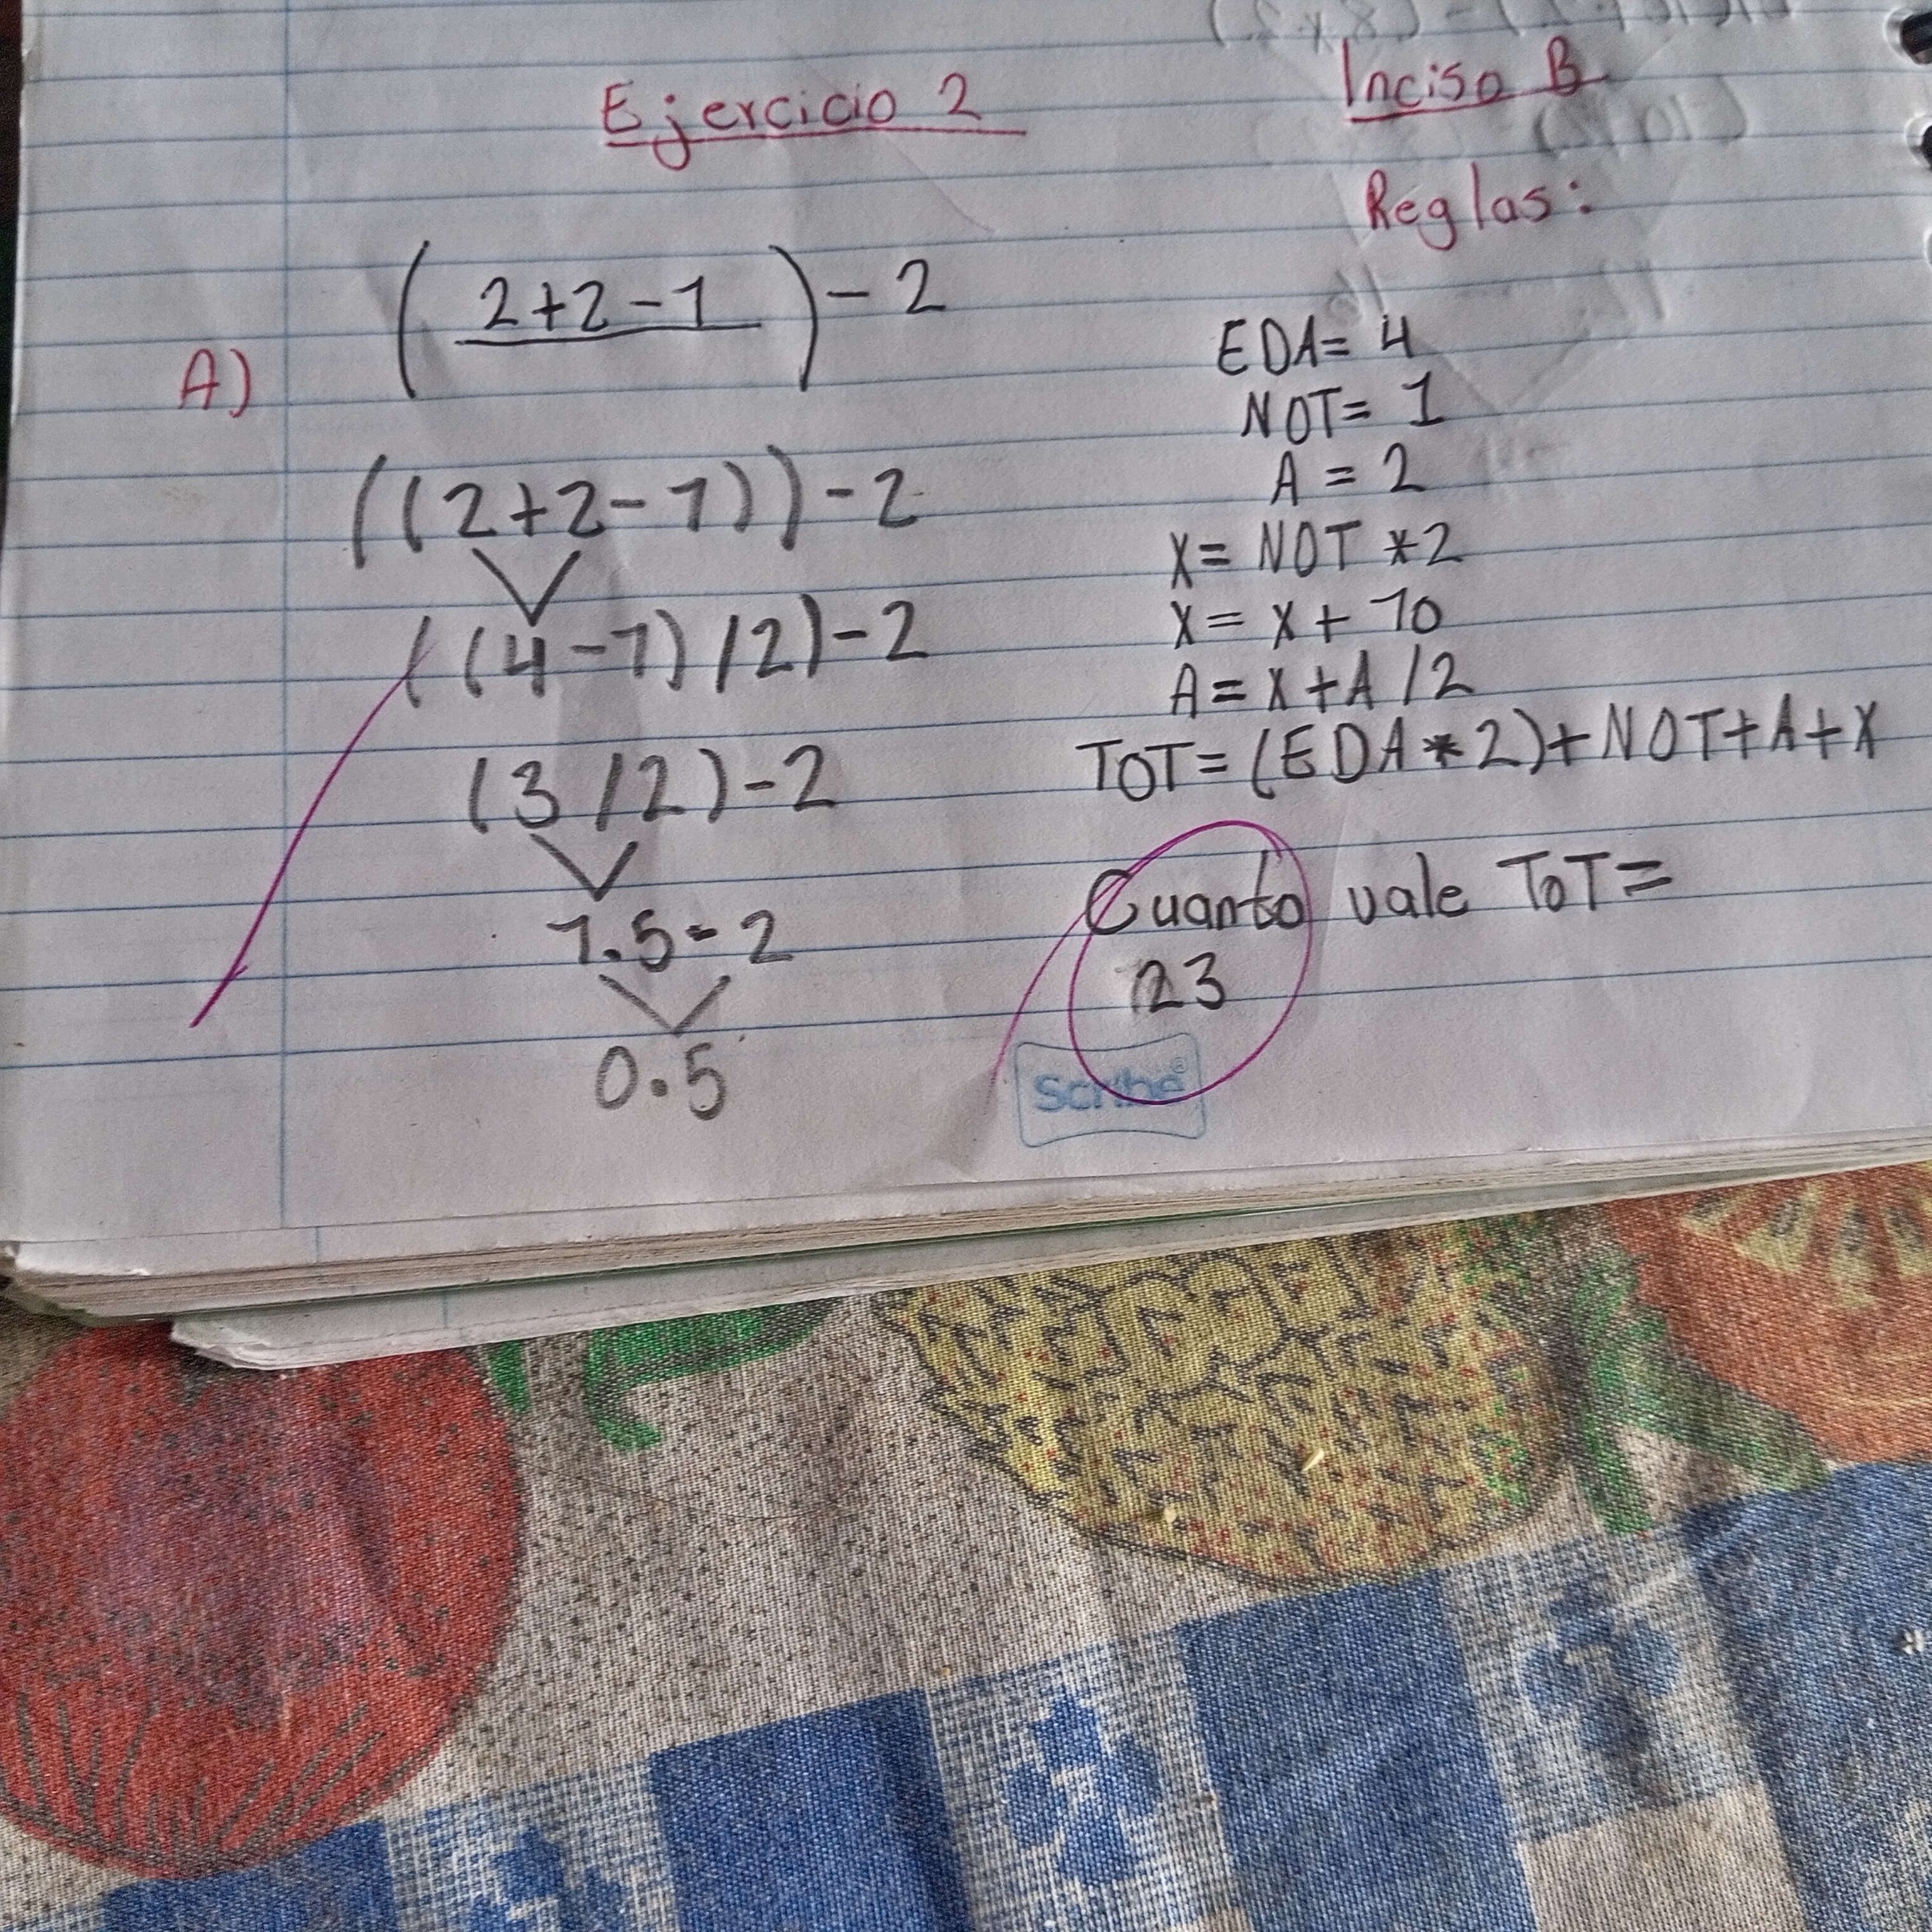 Ejercicio 2
A)
( 2+2-1 ) - 2
((2+2-1)) - 2
((4-1)/2) - 2
(3/2) - 2
1.5 - 2
0.5
Inciso B
Reglas:
EDA= 4
NOT= 1
A = 2
X= NOT *2
X= X + 10
A= X+A /2
TOT= (EDA*2)+NOT+A+X
Cuanto vale TOT=
23
Scribe®